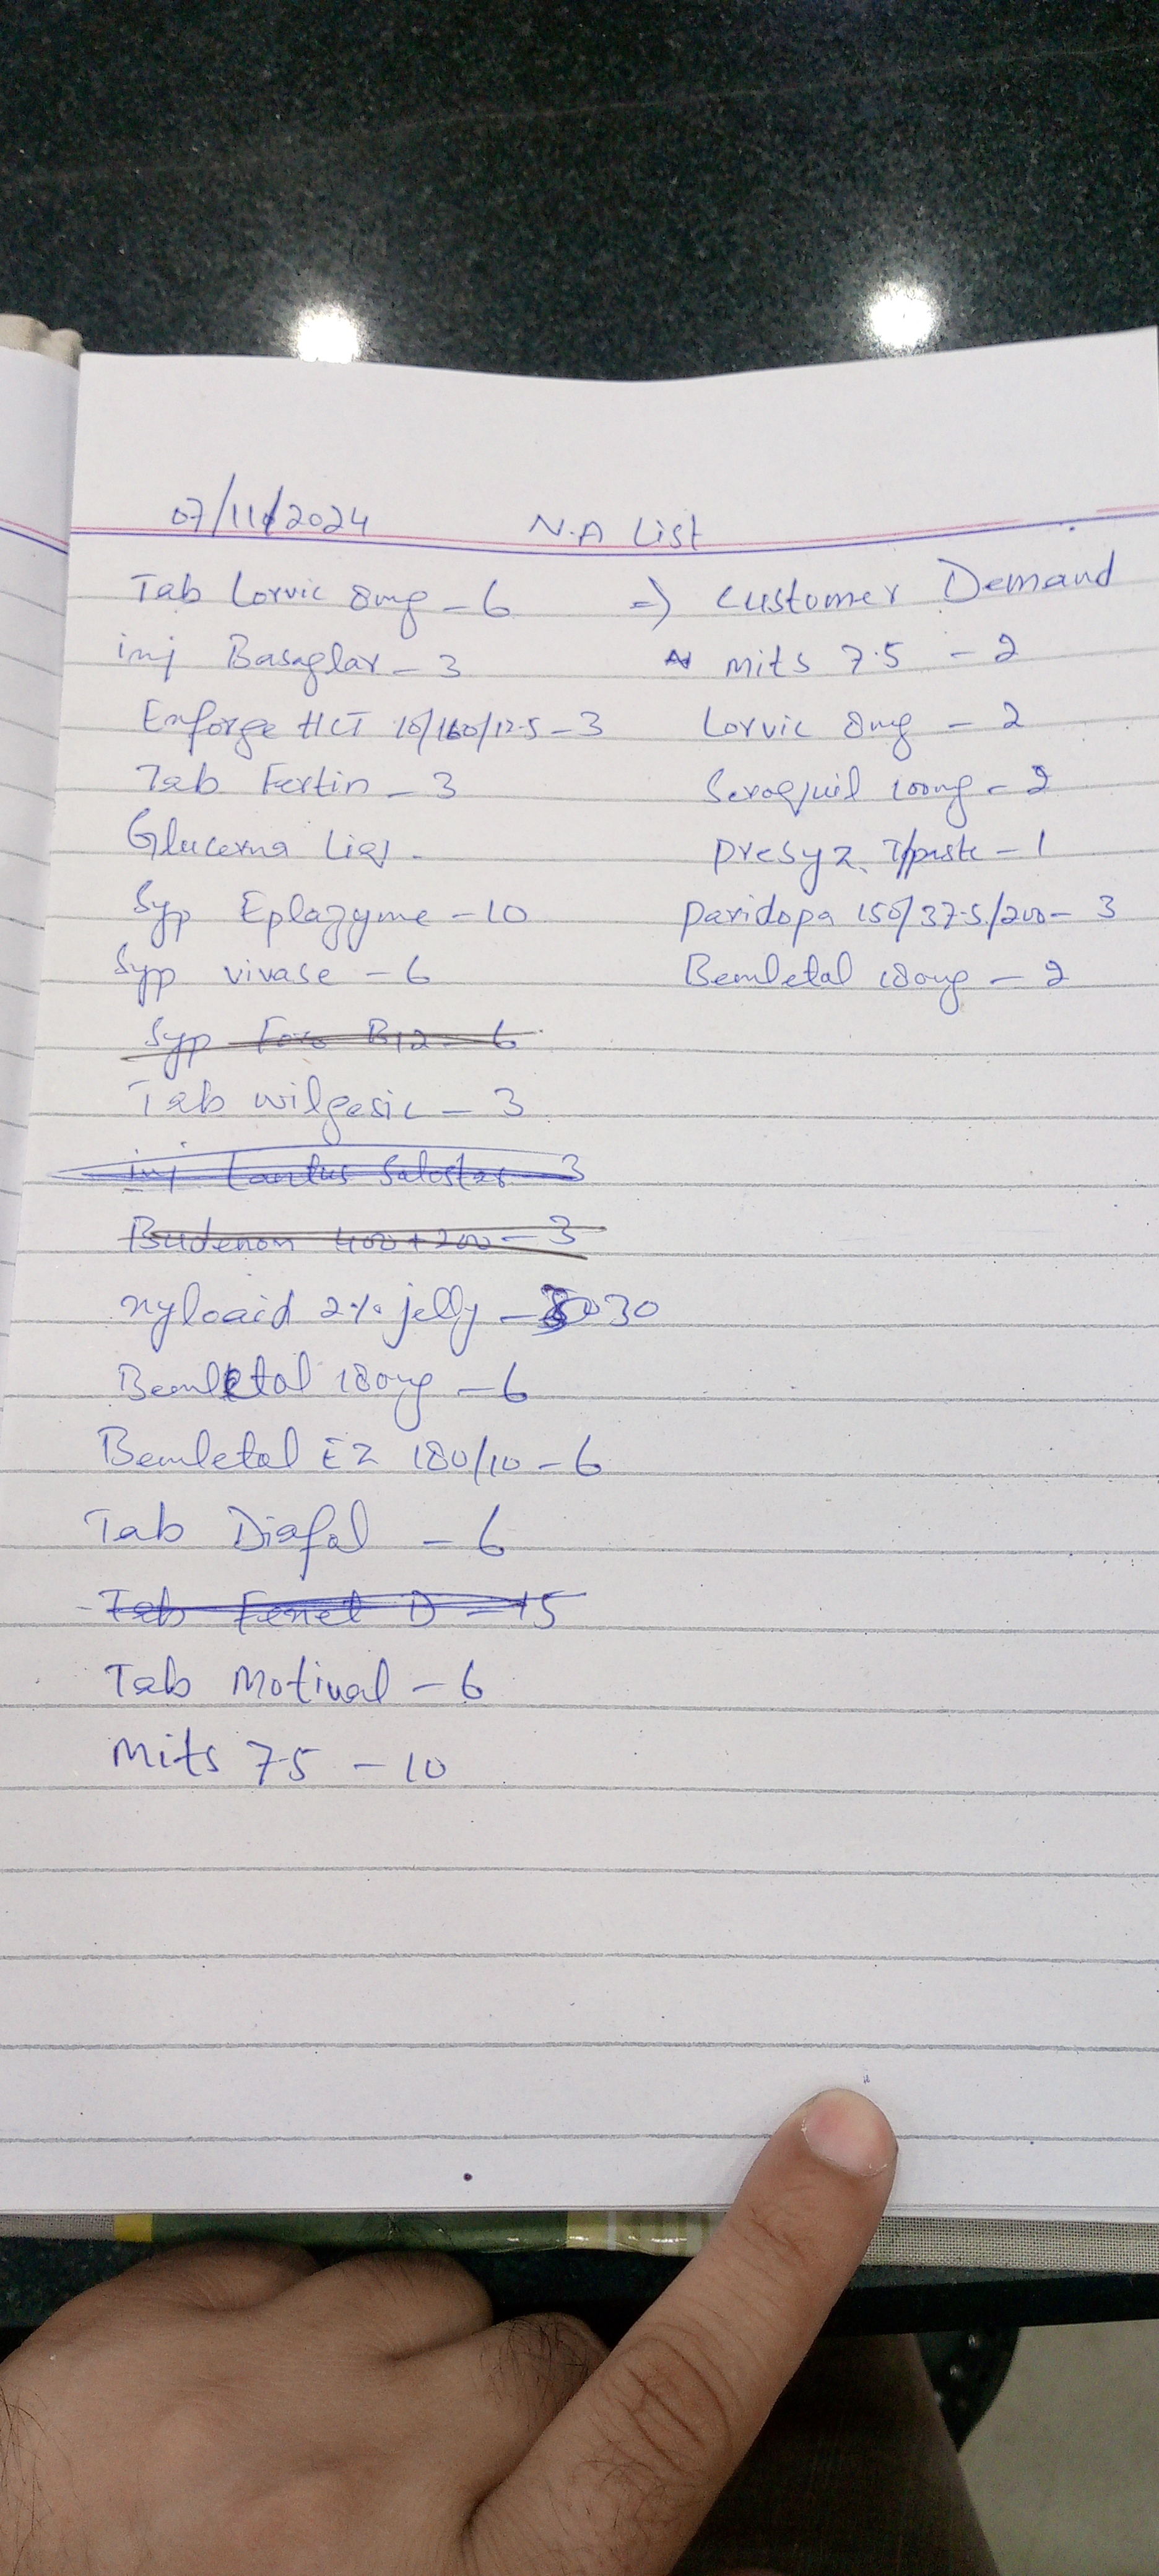 07/11/2024 N.A List
Tab Lorvic 8mg - 6
inj Basaglar - 3
Exforge HCT 10/160/12.5 - 3
Tab Fertin - 3
Glucerna Liq -
Syp Eplazyme - 10
Syp vivase - 6
Syp B12 - 6
Tab wilgesic - 3
inj Lantus Solostar - 3
Budenon 400+200 - 3
xylocaid 2% jelly - 30
Bemletal 180mg - 6
Bemletal EZ 180/10 - 6
Tab Diafol - 6
Tab D - 15
Tab Motival - 6
Mits 75 - 10
=> Customer Demand
mits 7.5 - 2
Lorvic 8mg - 2
Seroquil 100mg - 2
presyz T/paste - 1
paridopa 150/37.5/200 - 3
Bemletal 180mg - 2